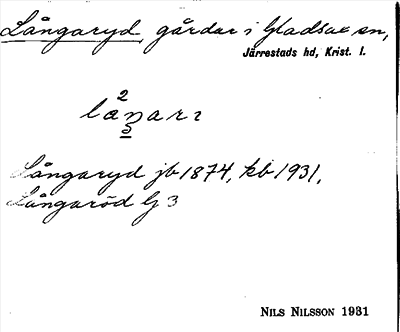 Långaryd, gårdar i Gladsax sn,
Järrestads hd, Krist. l.
Långaryd jb 1874, kb 1931,
Långaröd G 3
NILS NILSSON 1931